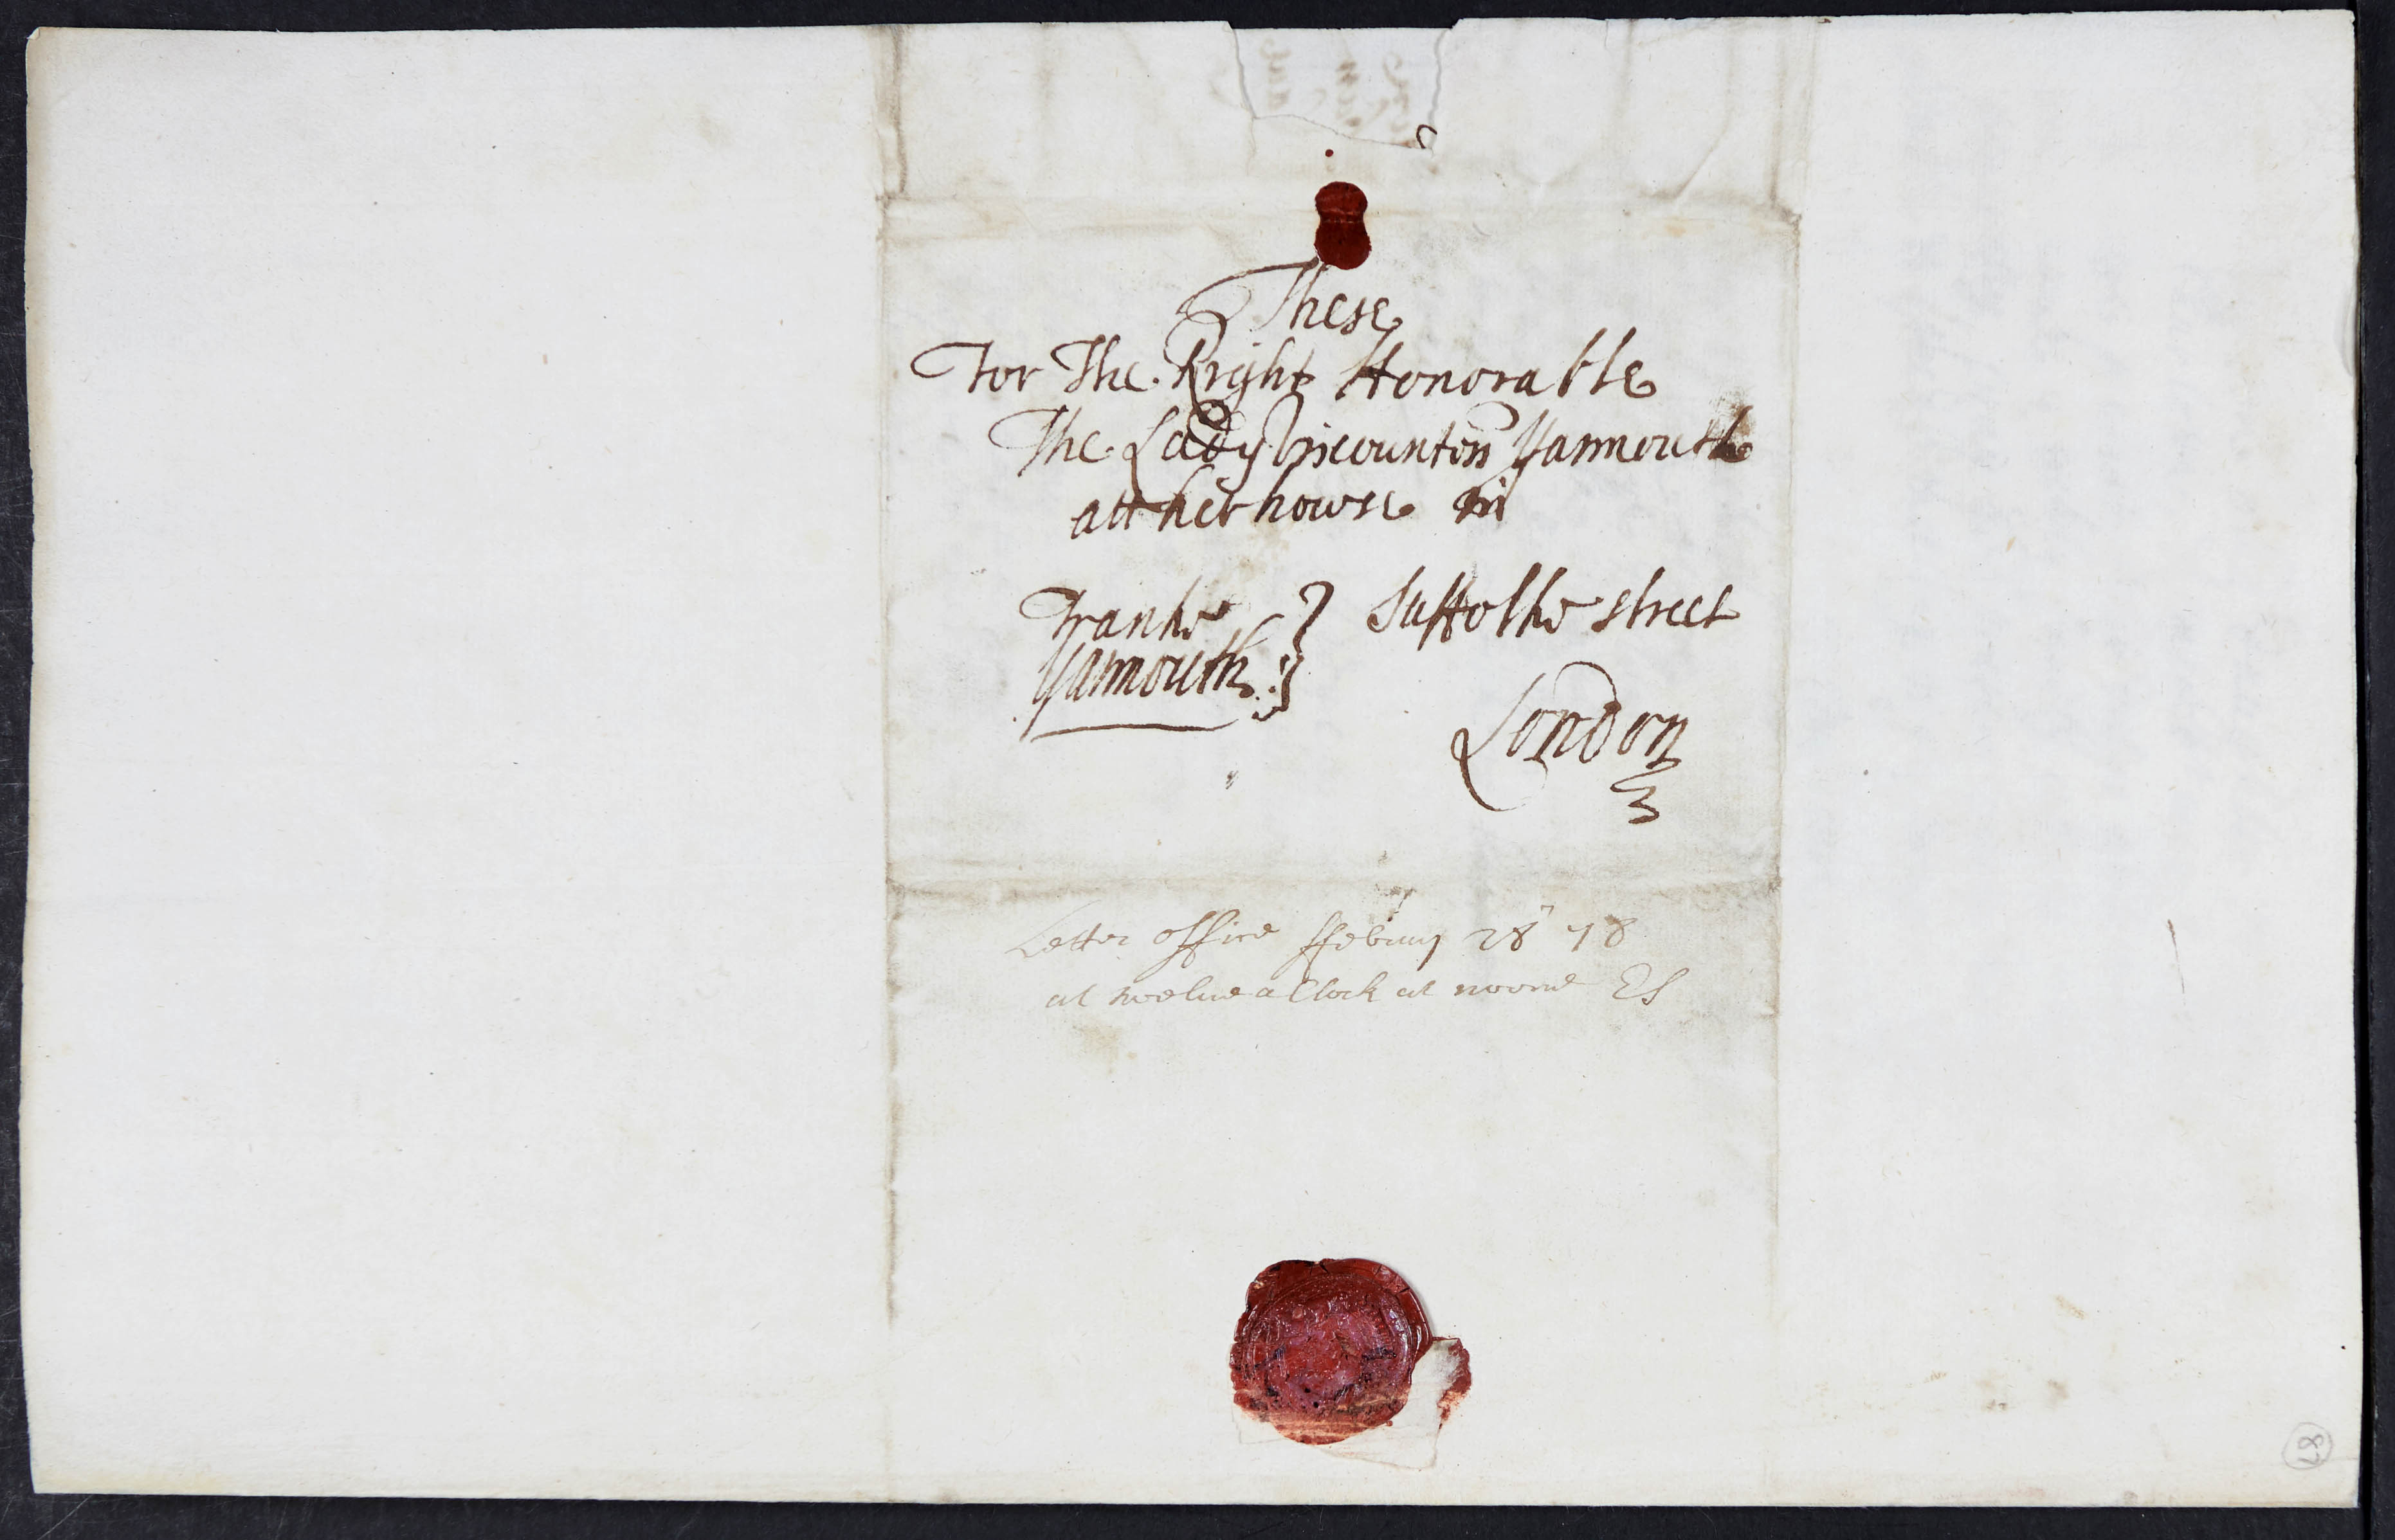 These
For The Right Honorable
The Lady Viscountess Yarmouth
att her howse in
Franke
Yarmouth
Suffolke street
London
Letter office ffebruary 28 78
at twelue a Clock at noone ES
87